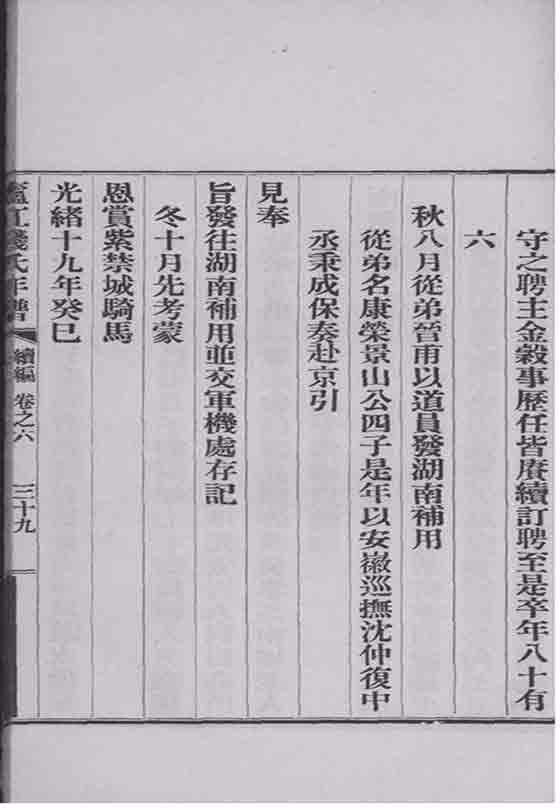 守之聘主金榖事歷任皆賡續訂聘至是卒年八十有
六
秋八月從弟晉甫以道員發湖南補用
從弟名康榮景山公四子是年以安徽巡撫沈仲復中
丞秉成保奏赴京引
見奉
旨發往湖南補用並交軍機處存記
冬十月先考蒙
恩賞紫禁城騎馬
光緒十九年癸巳
廬江錢氏年譜 續編 卷之六 三十九